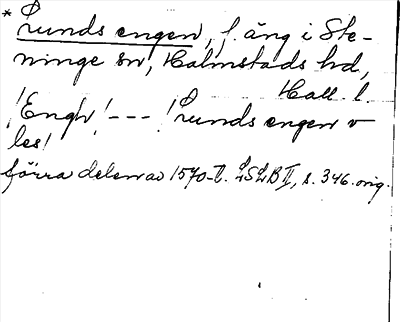 * Lunds engen, f. äng i Ste-
ninge sn, Halmstads hd,
Hall. l.
! Engh! --- ! Lunds engen v
les!
förra delen av 1570-t. LSLB II, s. 346. orig.